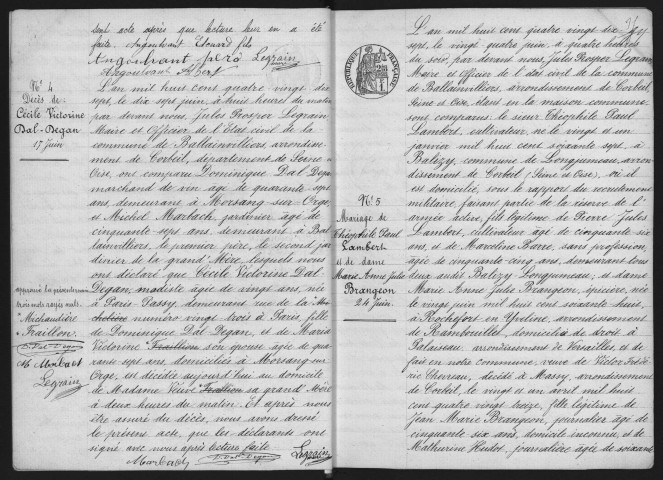 sont acte après que lecture leur en a été
faite. Angoulvant Edouard fils
Angoulvant père Legrain
Angoulvant Albert
N° 4
Décès de
Cécile Victorine
Dal-Degan
17 Juin
L'an mil huit cent quatre vingt dix
sept, le dix sept juin, à huit heures du matin
par devant nous, Jules Prosper Legrain
Maire et Officier de l'Etat civil de la
commune de Ballainvilliers arrondisse-
ment de Corbeil, département de Seine et
Oise, ont comparu Dominique Dal Degan
marchand de vin âgé de quarante sept
ans, demeurant à Morsang-sur-Orge,
et Michel Marbach, jardinier âgé de
cinquante sept ans, demeurant à Bal
lainvilliers, le premier père, le second jar
dinier de la grand'Mère, lesquels nous
ont déclaré que Cécile Victorine Dal-
Degan, modiste âgée de vingt ans, née
à Paris-Passy, demeurant rue de la
numéro vingt trois à Paris, fille
de Dominique Dal Degan, et de Maria
Victorine Traillon son épouse agée de qua
rante sept ans domiciliés à Morsang-sur
Orge, est décédée aujourd'hui au domicile
de Madame Veuve Traillon sa grand'Mère
à deux heures du matin. Et après nous
être assuré du décès, nous avons dressé
le présent acte, que les déclarants ont
signé avec nous après lecture faite
Marbach D. Dal-Degan Legrain
approuvé
trois mots rayés nuls.
Michaudière
Traillon
D. Dal-Degan
Marbach
Legrain
REPUBLIQUE FRANÇAISE
L'an mil huit cent quatre vingt dix
sept, le vingt quatre juin, à quatre heures
du soir, par devant nous, Jules Prosper Legrain
Maire et officier de l'état civil de la commune
de Ballainvilliers, arrondissement de Corbeil,
Seine et Oise, dans la maison commune
sont comparus le sieur Théophile Paul
Lambert, cultivateur, né le vingt et un
janvier mil huit cent soixante sept, à
Balizy, commune de Longjumeau, arron
dissement de Corbeil (Seine et Oise), où il
est domicilié, sous le rapport du recrutement
militaire, faisant partie de la réserve de l'
armée active, fils légitime de Pierre Jules
Lambert, cultivateur âgé de cinquante six
ans, et de Marceline Parre, sans profession,
âgée de cinquante cinq ans, demeurant tous
deux audit Balizy Longjumeau; et dame
Marie Anne Julie Brangeon, épicière, née
le vingt juin mil huit cent soixante huit,
à Rochefort en Yveline, arrondissement
de Rambouillet, domiciliée de droit à
Palaiseau, arrondissement de Versailles et de
fait en notre commune, veuve de Victor Fré
déric Choreau, décédé à Massy, arrondissement
de Corbeil, le vingt et un avril mil huit
cent quatre vingt treize, fille légitime de
Jean Marie Brangeon, journalier âgé de
cinquante six ans, domicile inconnu, et de
Mathurine Hudot, journalière âgée de soixante
N° 5
Mariage de
Théophile Paul
Lambert
et de dame
Marie Anne Julie
Brangeon
24 juin.